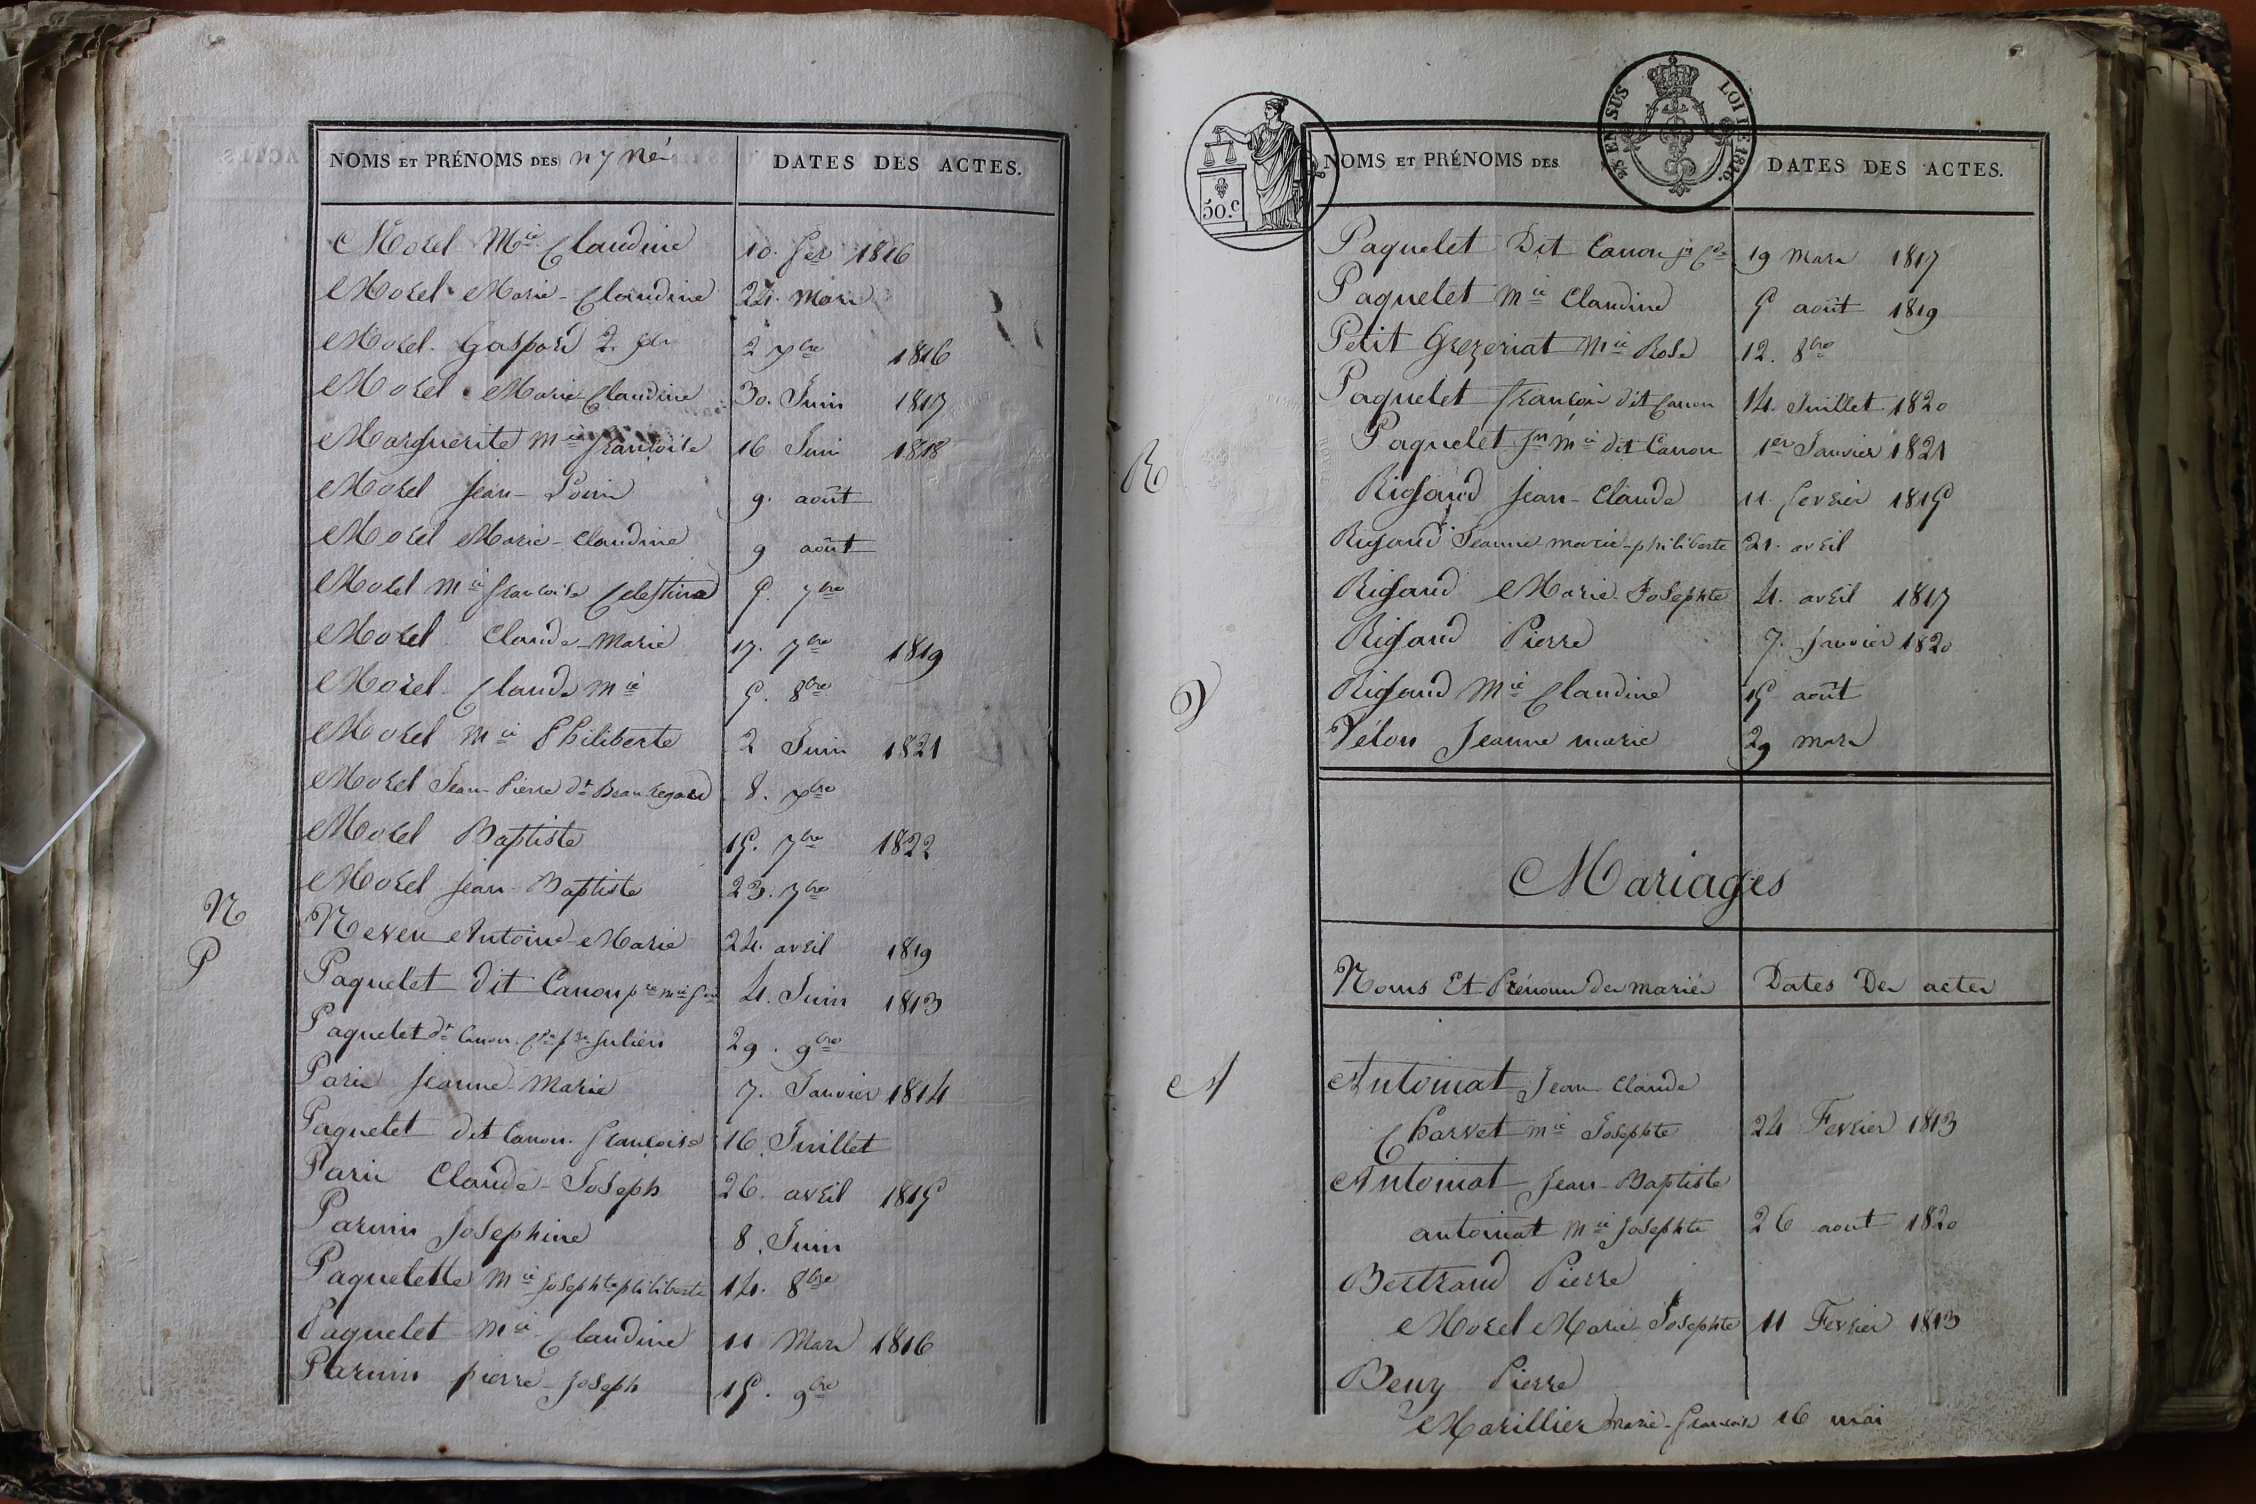 NOMS ET PRÉNOMS DES DATES DES ACTES.
Morel Mie Claudine 10. fer 1816
Morel Marie-Claudine 24. Mars
Morel Gaspard 2 7bre 1816
Morel Marie Claudine 30. Juin 1817
Marguerite Mie françoise 16 Juin 1818
Morel Jean-Louis 9. août
Morel Marie-Claudine 9 août
Morel Mie françoise Celestine 5. 7bre
Morel Claude-Marie 17. 7bre 1819
Morel Claude Mie 5. 8bre
Morel Mie Philiberte 2 Juin 1821
Morel Jean-Pierre dt Beauregard 8. Xbre
Morel Baptiste 15. 7bre 1822
Morel Jean-Baptiste 23. 7bre
N
Neveu Antoine-Marie 24. avril 1819
P
Paquelet dit Canon 4. Juin 1813
Paquelet dt Canon Julien 29. 9bre
Paris Jeanne-Marie 7. Janvier 1814
Paquelet dit Canon françoise 16. Juillet
Paris Claude-Joseph 26. avril 1815
Parmin Josephine 8. Juin
Paquelette Mie Josephte philiberte 14. 8bre
Paquelet Mie Claudine 11 Mars 1816
Parmin pierre-Joseph 15. 9bre
50.c
25 EN SUS LOI DE 1816.
NOMS ET PRÉNOMS DES DATES DES ACTES.
Paquelet Dit Canon 19 Mars 1817
Paquelet Mie Claudine 5 août 1819
Petit Grezeriat Mie Rose 12. 8bre
Paquelet françois dit Canon 14. Juillet 1820
Paquelet Jn Mie dit Canon 1er Janvier 1821
R
Rigaud Jean-Claude 11. fevrier 1815
Rigaud Jeanne marie-philiberte 21. avril
Rigaud Marie-Josephte 4. avril 1817
Rigaud Pierre 7. Janvier 1820
Rigaud Mie Claudine 15 août
V
Vélon Jeanne marie 29 mars
Mariages
Noms Et Prénoms des mariés Dates Des actes
A
Antoinat Jean Claude
Charvet mie Josephte 24 Fevrier 1813
Antoinat Jean-Baptiste
antoinat Mie Josephte 26 aout 1820
Bertrand Pierre
Morel Marie Josephte 11 Fevrier 1813
Beuy Pierre
Marillier marie-françoise 16 mai